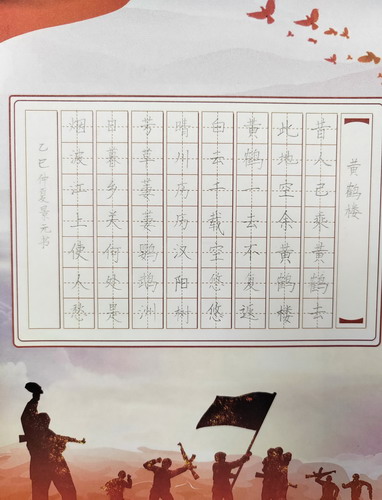 黄鹤楼
昔人已乘黄鹤去
此地空余黄鹤楼
黄鹤一去不复返
白云千载空悠悠
晴川历历汉阳树
芳草萋萋鹦鹉洲
日暮乡关何处是
烟波江上使人愁
乙巳仲夏元书